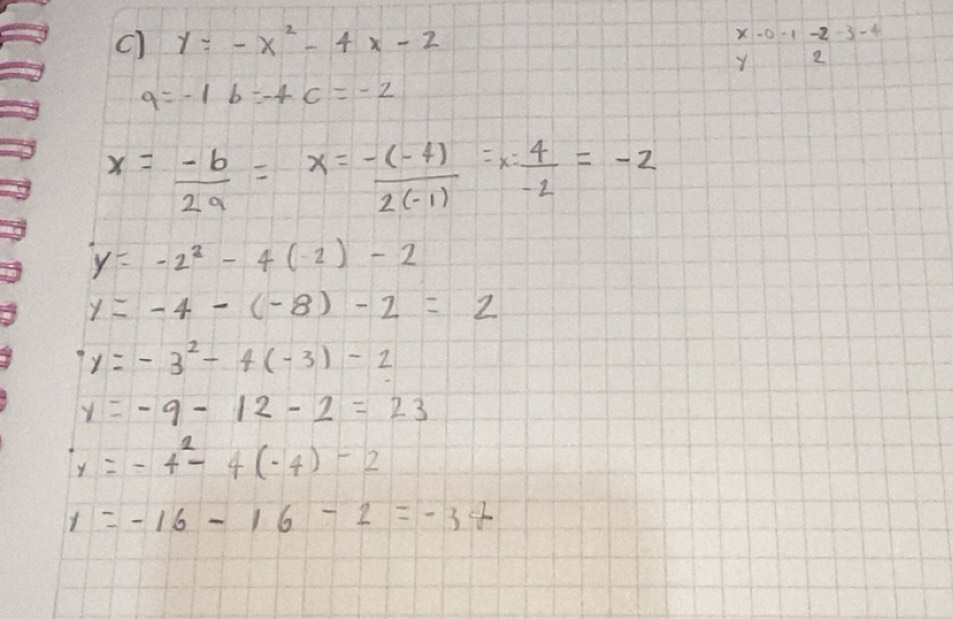 c) y = -x² - 4x - 2
x -0 -1 -2 -3 -4
y 2
a = -1 b = -4 c = -2
x = -b/2a = x = -(-4)/2(-1) = x = 4/-2 = -2
y = -2² - 4(-2) - 2
y = -4 - (-8) - 2 = 2
y = -3² - 4(-3) - 2
y = -9 - 12 - 2 = 23
y = -4² - 4(-4) - 2
y = -16 - 16 - 2 = -34